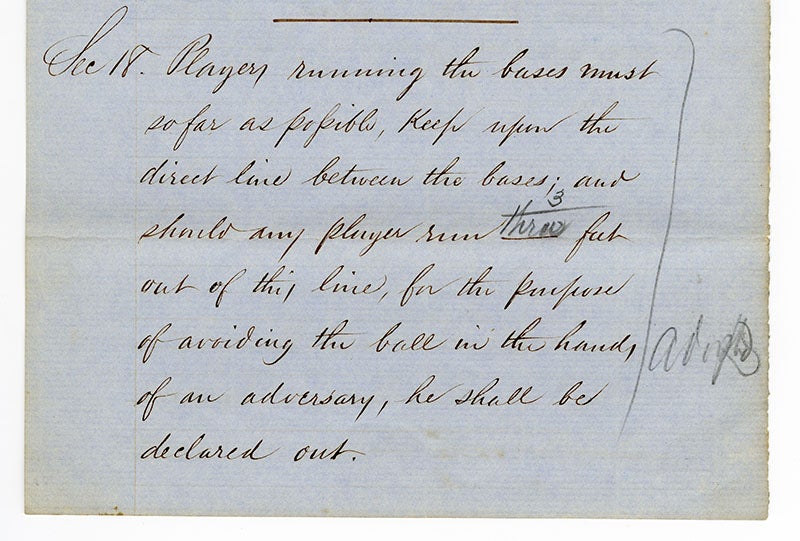 Sec 18. Players running the bases must
so far as possible, Keep upon the
direct line between the bases; and
3
should any player run three feet
out of this line, for the purpose
of avoiding the ball in the hands
of an adversary, he shall be
declared out.
Adopted